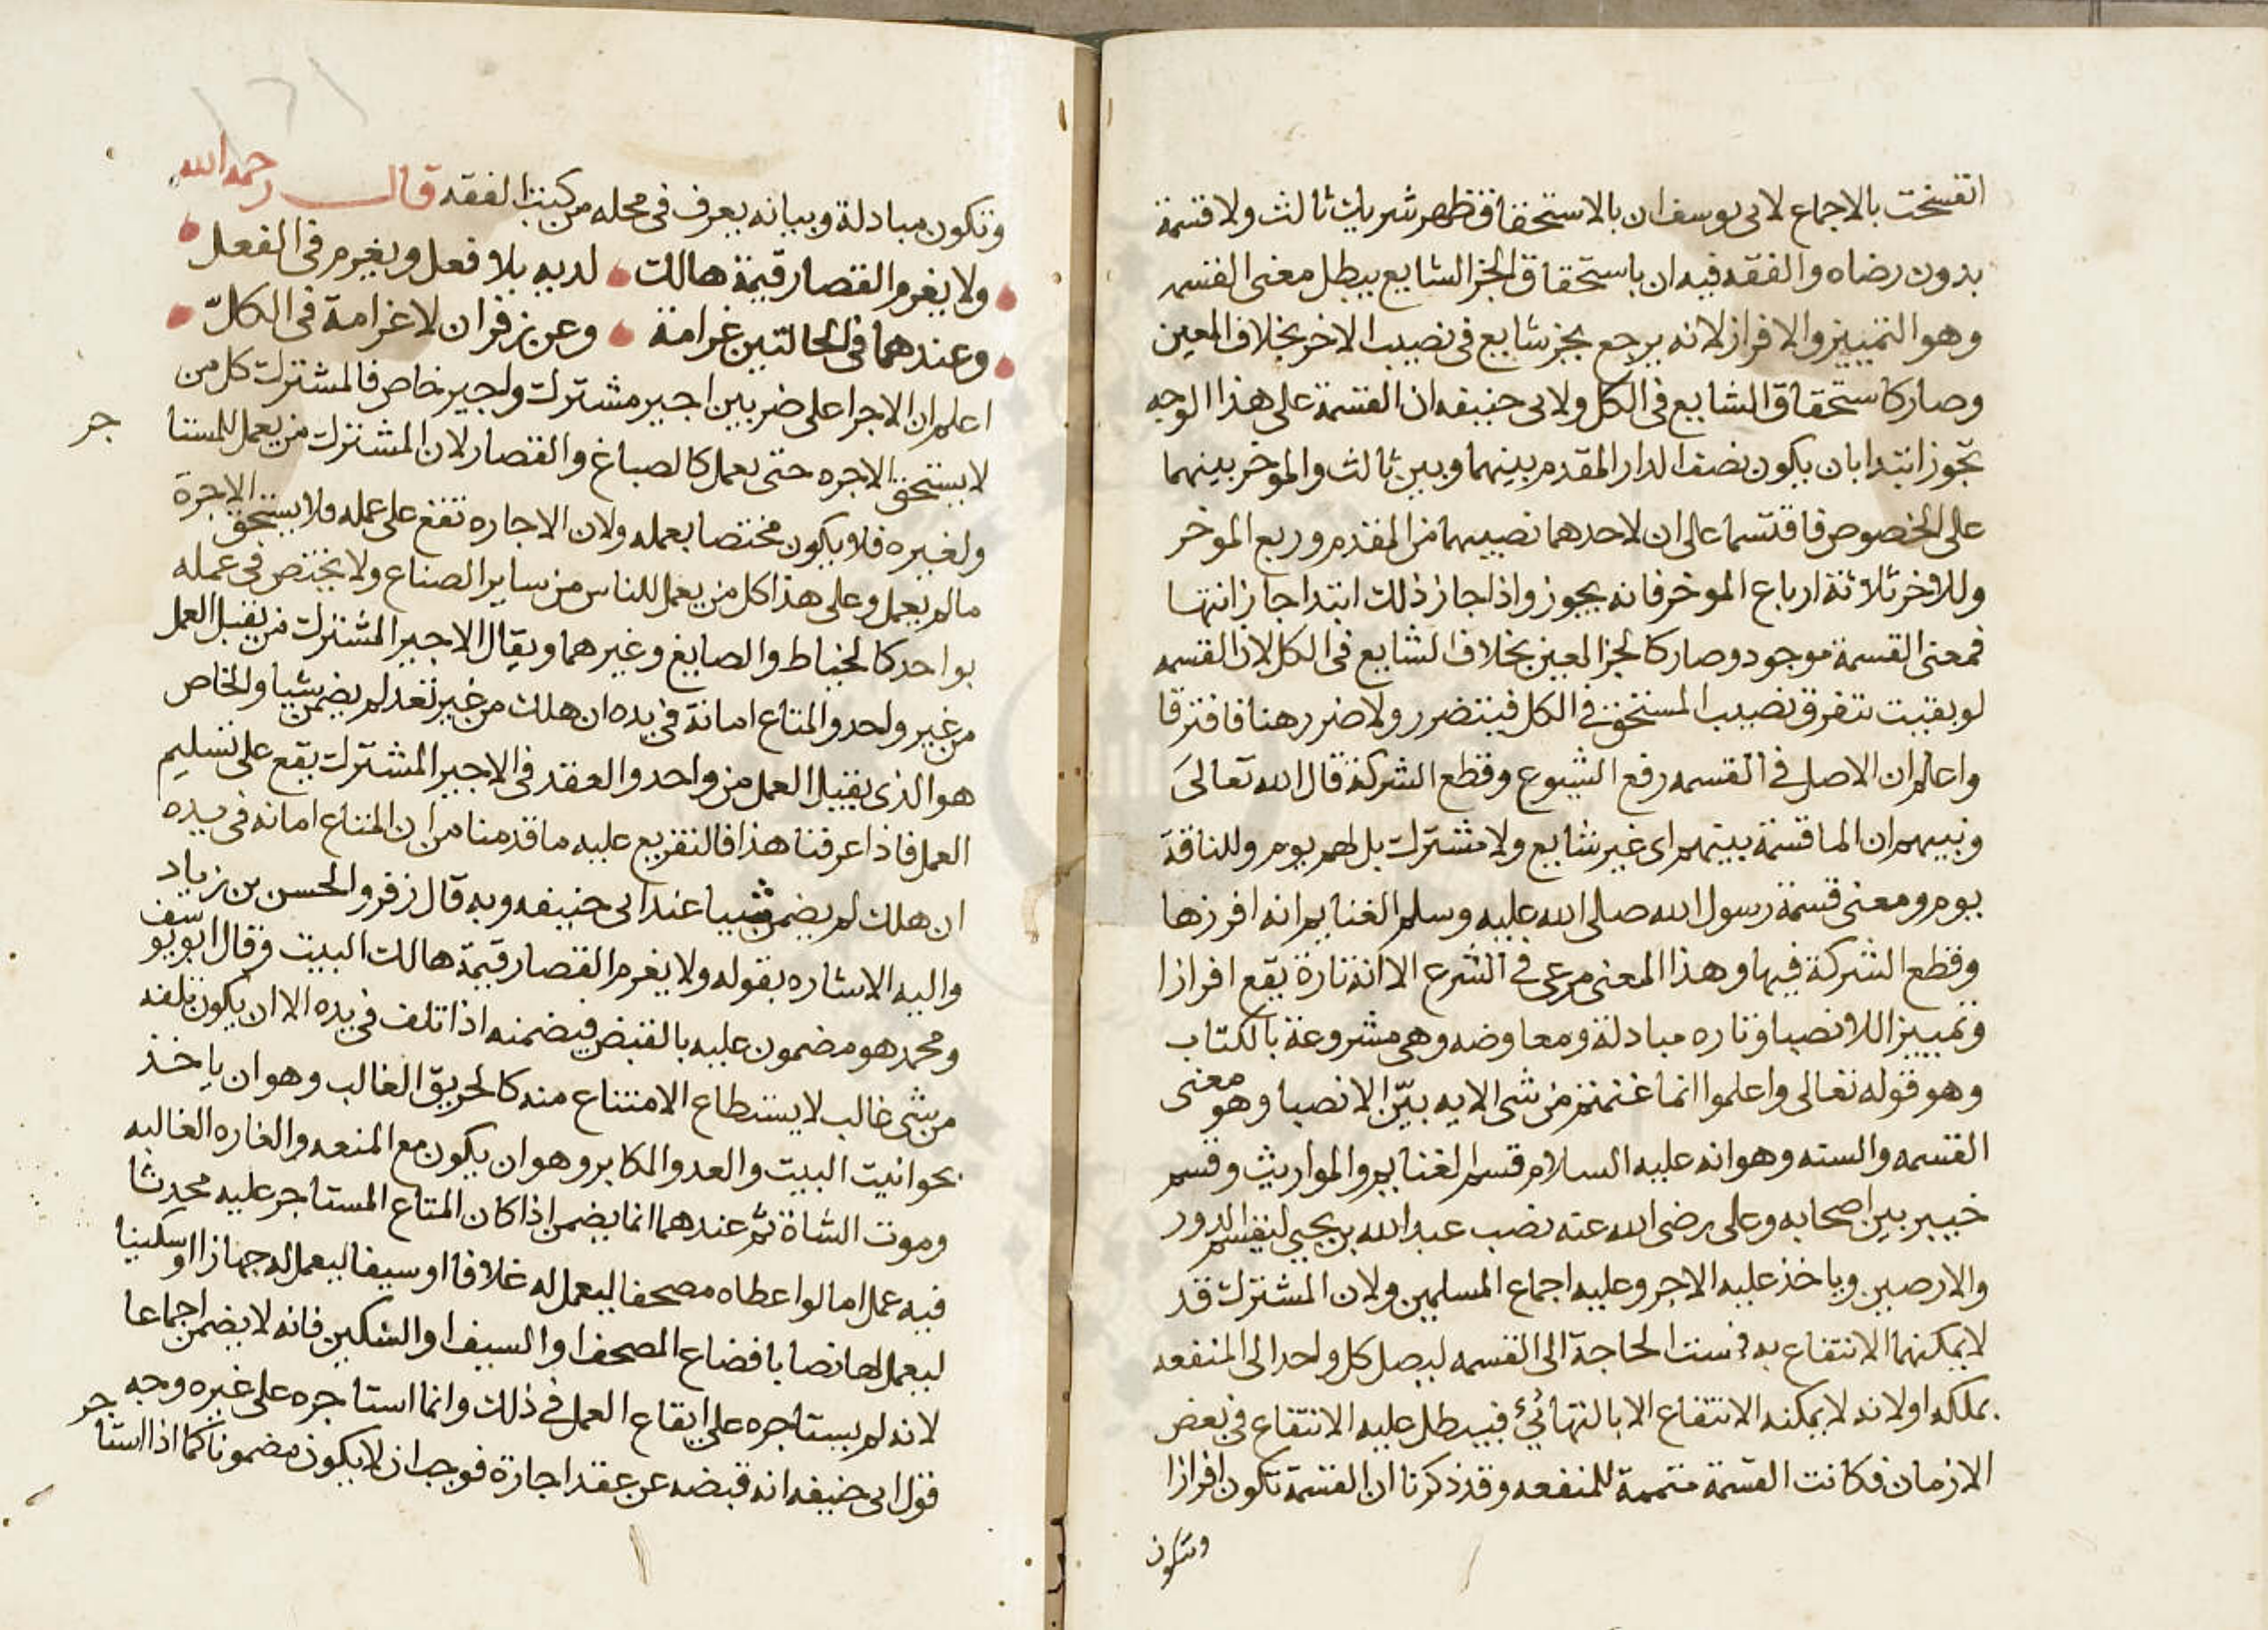 انفسخت بالاجماع لابي يوسف ان بالاستحقاق ظهر شريك ثالث ولا قسمة
بدون رضاه والفقه فيه ان باستحقاق الجز الشايع يبطل معنى القسمه
وهو التمييز والافراز لانه يرجع بجز شايع في نصيب الاخر بخلاف المعين
وصار كاستحقاق الشايع في الكل ولابي حنيفه ان القسمة على هذا الوجه
تجوز ابتدا بان يكون نصف الدار المقدم بينهما وبين ثالث والموخر بينهما
على الخصوص فاقتسما على ان لاحدهما نصيبهما من المقدم وربع الموخر
وللاخر ثلاثة ارباع الموخر فانه يجوز واذا جاز ذلك ابتدا جاز انتها
فمعنى القسمة موجود وصار كالجز المعين بخلاف الشايع في الكل لان القسمه
لو بقيت تتفرق نصيب المستحق في الكل فيتضرر ولا ضرر هنا فافترقا
واعلم ان الاصل في القسمه رفع الشيوع وقطع الشركة قال الله تعالى
ونبيهم ان الما قسمة بينهم اى غير شايع ولا مشترك بل لهم يوم وللناقة
يوم ومعنى قسمة رسول الله صلى الله عليه وسلم الغنايم انه افرزها
وقطع الشركة فيها وهذا المعنى مرعى في الشرع الا انه تارة يقع افرازا
وتمييزا للانصبا وتاره مبادلة ومعاوضه وهى مشروعة بالكتاب
وهو قوله تعالى واعلموا انما غنمتم من شى الايه بيّن الانصبا وهو معنى
القسمه والسنه وهو انه عليه السلام قسم الغنايم والمواريث وقسم
خيبر بين اصحابه وعلى رضى الله عنه نصب عبد الله بن يحيى ليقسم الدور
والارضين وياخذ عليه الاجر وعليه اجماع المسلمين ولان المشترك قد
لا يمكنهما الانتفاع به فمست الحاجة الى القسمه ليصل كل واحد الى المنفعه
بملكه او لانه لا يمكنه الانتفاع الا بالتهائئ فيبطل عليه الانتفاع في بعض
الازمان فكانت القسمة متممة للمنفعه وقد ذكرنا ان القسمة تكون افرازا
وتكون
وتكون مبادلة وبيانه يعرف في محله من كتب الفقه قال رحمه الله
ولا يغرم القصار قيمة هالك لديه بلا فعل ويغرم في الفعل
وعندهما في الحالتين غرامة وعن زفر ان لا غرامة في الكلّ
اعلم ان الاجرا على ضربين اجير مشترك واجير خاص فالمشترك كل من
لا يستحق الاجره حتى يعمل كالصباغ والقصار لان المشترك من يعمل للمستا جر
ولغيره فلا يكون مختصا بعمله ولان الاجاره تقع على عمله فلا يستحق الاجرة
مالم يعمل وعلى هذا كل من يعمل للناس من ساير الصناع ولا يختص في عمله
بواحد كالخياط والصايغ وغيرهما ويقال الاجير المشترك من يقبل العمل
من غير واحد والمتاع امانة في يده ان هلك من غير تعد لم يضمن شيا والخاص
هو الذى يقبل العمل من واحد والعقد في الاجير المشترك يقع على تسليم
العمل فاذا عرفنا هذا فالتفريع عليه ما قدمنا من ان المتاع امانه في يده
ان هلك لم يضمن شيا عند ابى حنيفه وبه قال زفر والحسن بن زياد
واليه الاشاره بقوله ولا يغرم القصار قيمة هالك البيت وقال ابو يوسف
ومحمد هو مضمون عليه بالقبض فيضمنه اذا تلف في يده الا ان يكون تلفه
من شى غالب لا يستطاع الامتناع منه كالحريق الغالب وهو ان ياخذ
بحوانيت البيت والعدو المكابر وهو ان يكون مع المنعه والغاره الغالبه
وموت الشاة ثم عندهما انما يضمن اذا كان المتاع المستاجر عليه محدثا
فيه عمل اما لو اعطاه مصحفا ليعمل له غلافا او سيفا ليعمل له جهازا او سكينا
ليعمل لها نصابا فضاع المصحف او السيف او السكين فانه لا يضمن اجماعا
لانه لم يستاجره على ايقاع العمل في ذلك وانما استاجره على غيره وجه
قول ابى حنيفه انه قبضه عن عقد اجارة فوجب ان لا يكون مضمونا كما اذا استا جر